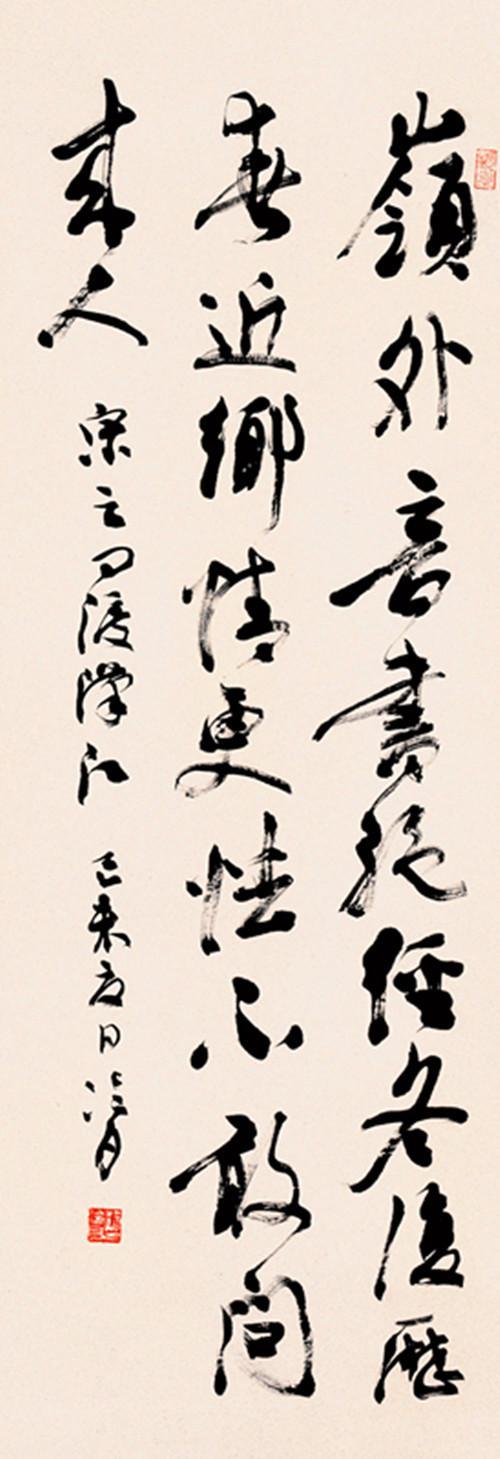 嶺外音書絕經冬復歷
春近鄉情更怯不敢問
來人
宋之问渡漢江 己未夏日